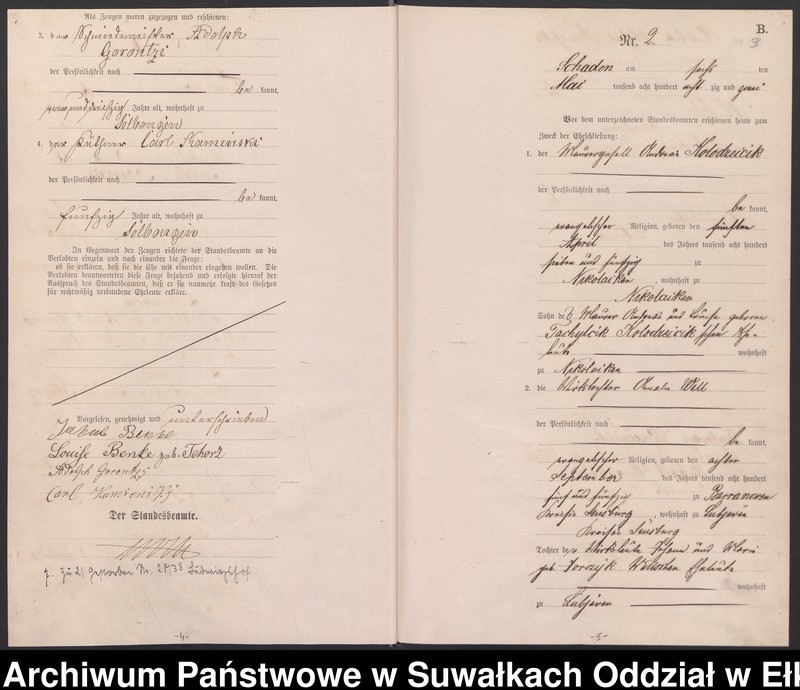 Als Zeugen waren zugezogen und erschienen:
3. der Schmiedemeister Adolph
Gorontzi
der Persönlichkeit nach
be kannt,
Jahre alt, wohnhaft zu
Selbongen
4. der Käthner Carl Kaminski
der Persönlichkeit nach
be kannt,
fünfzig Jahre alt, wohnhaft zu
Selbongen
In Gegenwart der Zeugen richtete der Standesbeamte an die
Verlobten einzeln und nach einander die Frage:
ob sie erklären, daß sie die Ehe mit einander eingehen wollen. Die
Verlobten beantworteten diese Frage bejahend und erfolgte hierauf der
Ausspruch des Standesbeamten, daß er sie nunmehr kraft des Gesetzes
für rechtmäßig verbundene Eheleute erkläre.
Vorgelesen, genehmigt und unterschrieben
Benke
Louise Benke geb. Tehorz
Adolph Gorontzi
Carl
Der Standesbeamte.
-4-
B.
3
Nr. 2.
Schaden am sechs ten
Mai tausend acht hundert acht zig und zwei
Vor dem unterzeichneten Standesbeamten erschienen heute zum
Zweck der Eheschließung:
1. der Maurergesell Andreas Kolodzeicik
der Persönlichkeit nach
be kannt,
evangelischer Religion, geboren den fünften
April des Jahres tausend acht hundert
sieben und fünfzig zu
Nikolaiken, wohnhaft zu
Nikolaiken
Sohn der Maurer Andreas und Louise geborene
Kolodzeicik schen Ehe-
leute wohnhaft
zu Nikolaiken
2. die Wirthstochter Amalie Will
der Persönlichkeit nach
be kannt,
evangelischer Religion, geboren den achten
September des Jahres tausend acht hundert
fünf und fünfzig zu Barranowen
Kreises Sensburg, wohnhaft zu Lubjewen
Kreises Sensburg
Tochter der Wirthsleute Johann und Marie
geb. Eheleute
wohnhaft
zu Lubjewen
-5-
Archiwum Państwowe w Suwałkach Oddział w Ełk